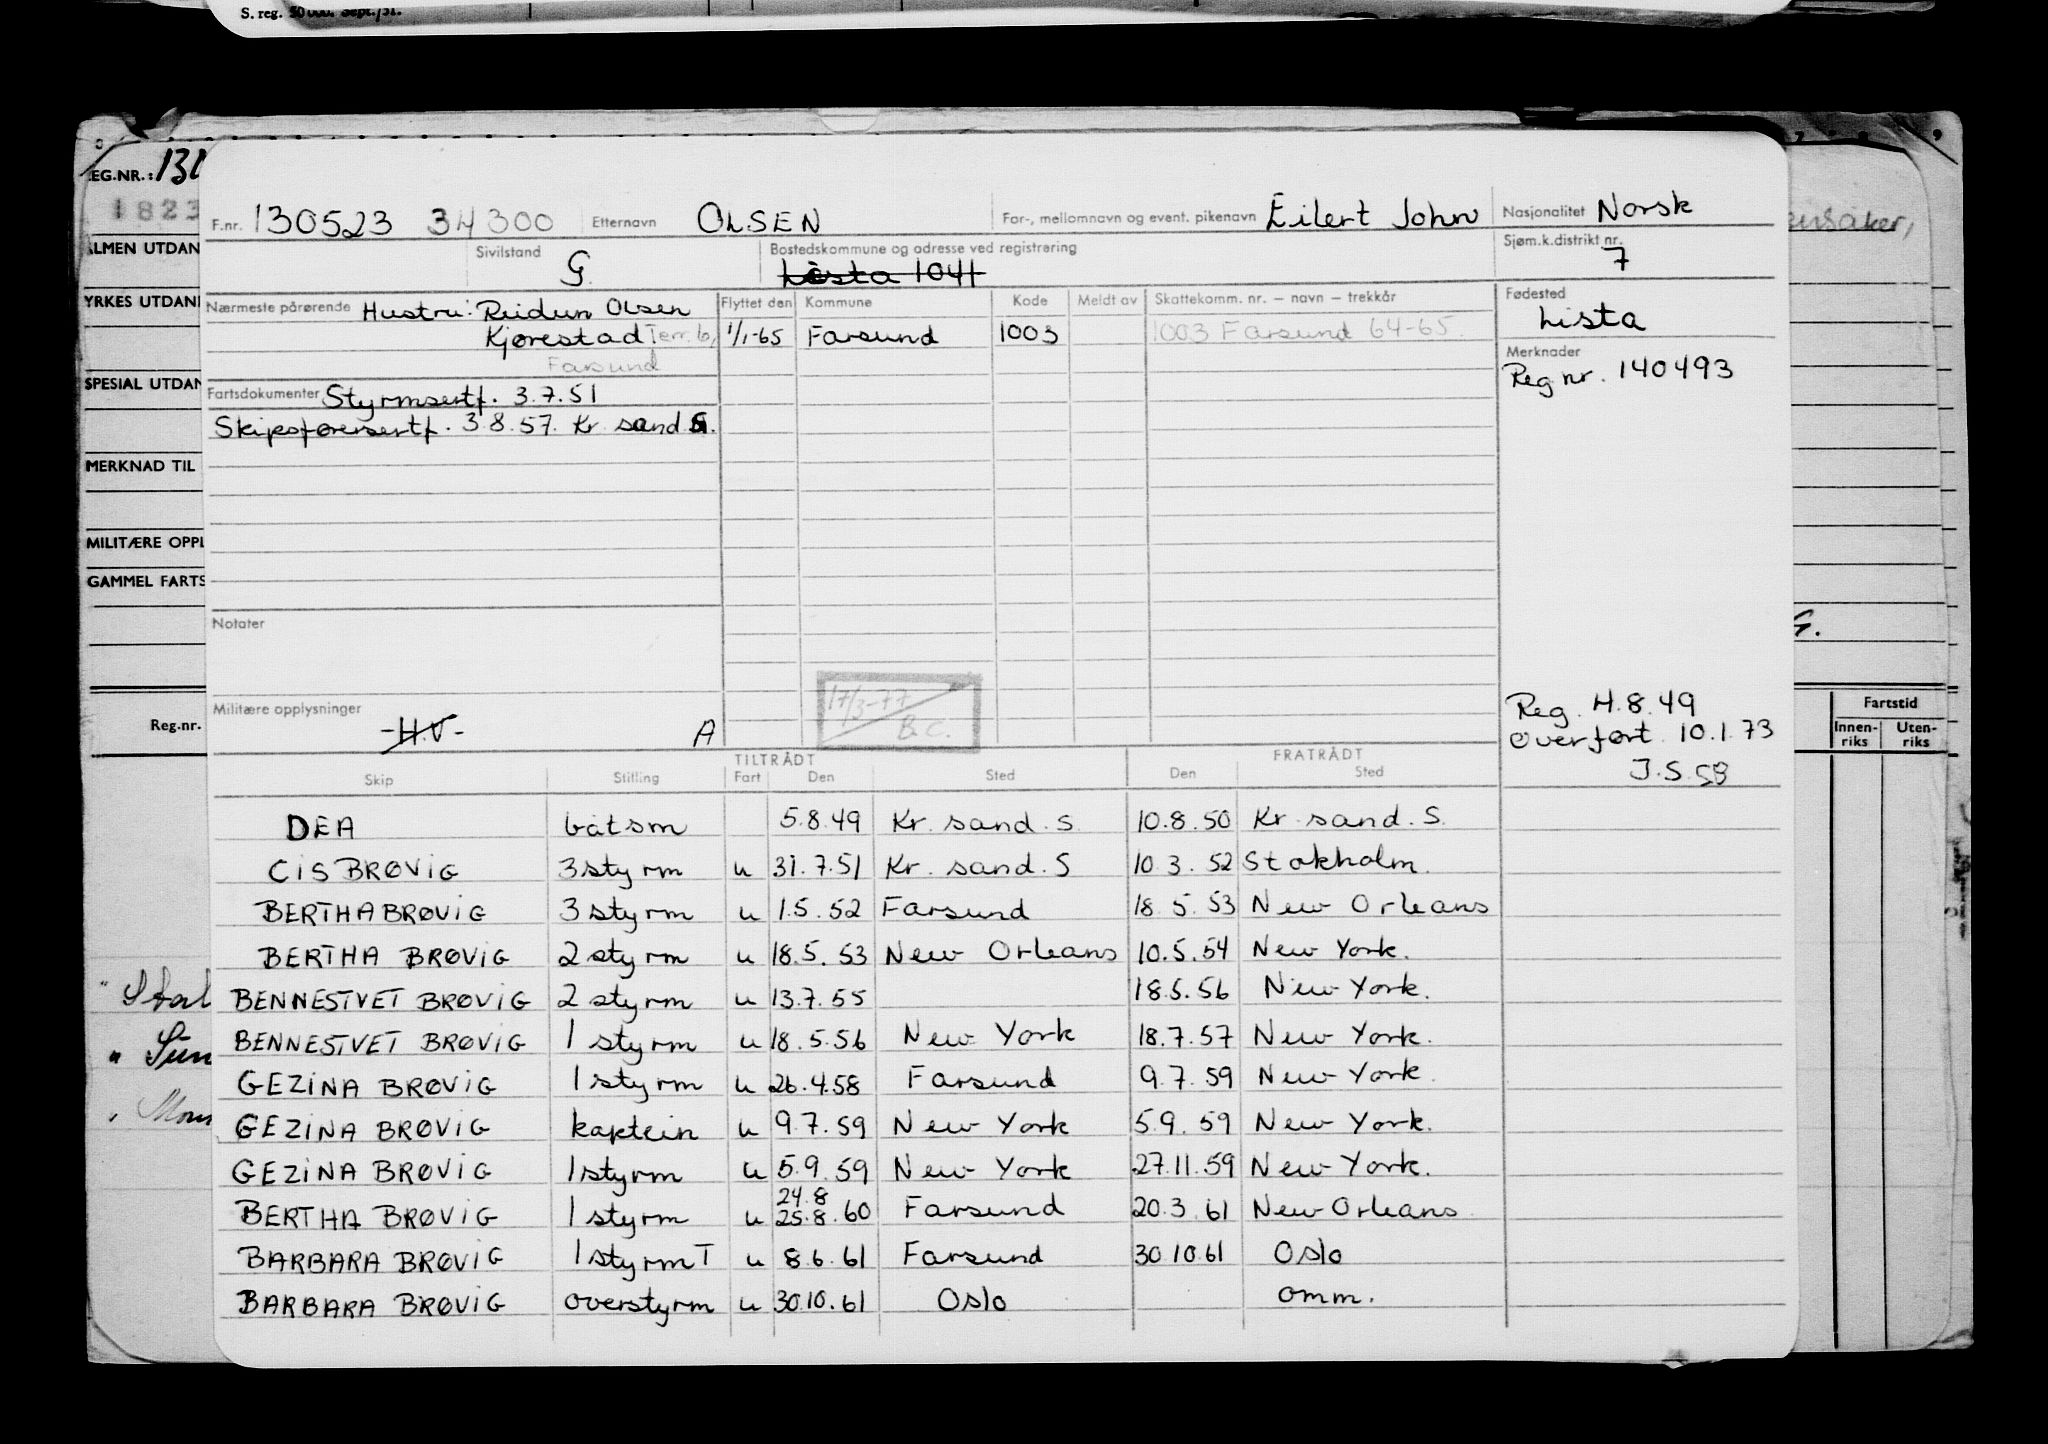 S. reg. 50 000. Sept./51.
EG.NR.:
1823
F.nr. 130523 34300 Etternavn OLSEN For-, mellomnavn og event. pikenavn Eilert John Nasjonalitet Norsk
ALMEN UTDAN
Sivilstand G. Bostedskommune og adresse ved registrering Lista 1041 Sjøm.k.distrikt nr. 7
YRKES UTDANI
Nærmeste pårørende Hustru: Reidun Olsen Flyttet den Kommune Kode Meldt av Skattekomm. nr. – navn – trekkår Fødested
Kjørestad Terr. 6, 1/1-65 Farsund 1003 1003 Farsund 64-65. Lista
Farsund
Merknader
Reg nr. 140493
SPESIAL UTDAN
Fartsdokumenter Styrmsertf. 3.7.51
Skipsførersertf. 3.8.57. Kr. sand S.
MERKNAD TIL
MILITÆRE OPPL
GAMMEL FARTS
Notater
G.
Militære opplysninger
-H.V- A
17/3-77
B.C.
Reg. H.8.49
Overført 10.1.73
J.S. 58
Reg.nr.
Fartstid
Innen-riks Uten-riks
TILTRÅDT FRATRÅDT
Skip Stilling Fart Den Sted Den Sted
DEA båtsm 5.8.49 Kr. sand. S. 10.8.50 Kr. sand. S.
CIS BRØVIG 3 styrm u 31.7.51 Kr. sand. S 10.3.52 Stokholm.
BERTHA BRØVIG 3 styrm u 1.5.52 Farsund 18.5.53 New Orleans
BERTHA BRØVIG 2 styrm u 18.5.53 New Orleans 10.5.54 New York.
BENNESTVET BRØVIG 2 styrm u 13.7.55 18.5.56 New York.
BENNESTVET BRØVIG 1 styrm u 18.5.56 New York 18.7.57 New York.
GEZINA BRØVIG 1 styrm u 26.4.58 Farsund 9.7.59 New York.
GEZINA BRØVIG kaptein u 9.7.59 New York 5.9.59 New York.
GEZINA BRØVIG 1 styrm u 5.9.59 New York 27.11.59 New York.
24.8
BERTHA BRØVIG 1 styrm u 25.8.60 Farsund 20.3.61 New Orleans
BARBARA BRØVIG 1 styrm T u 8.6.61 Farsund 30.10.61 Oslo
BARBARA BRØVIG overstyrm u 30.10.61 Oslo omm.